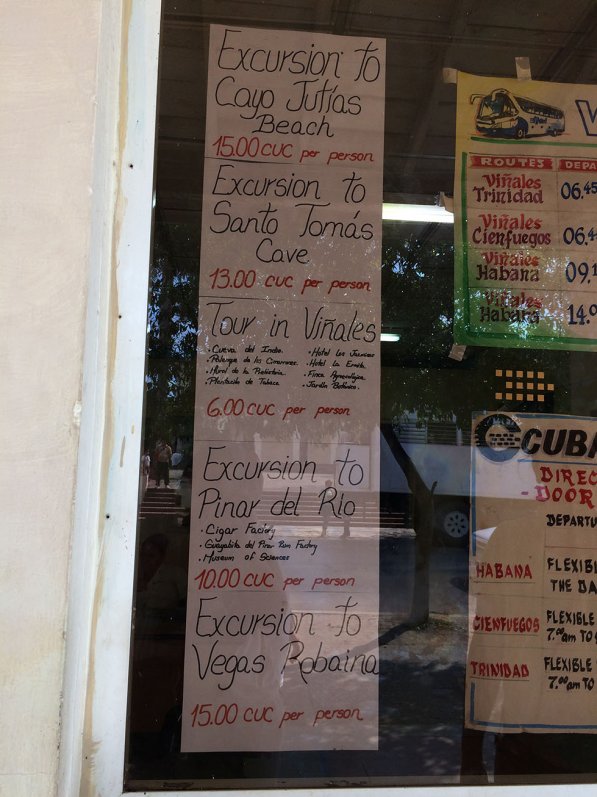 Excursion to
Cayo Jutías
Beach
15.00 CUC per person
Excursion to
Santo Tomás
Cave
13.00 CUC per person
Tour in Viñales
• Cueva del Indio.
• Palenque de los Cimarrones.
• Mural de la Prehistoria.
• Plantación de Tabaco.
• Hotel Los Jazmines
• Hotel La Ermita.
• Finca Agroecológica.
• Jardín Botánico.
6.00 CUC per person
Excursion to
Pinar del Río
• Cigar Factory
• Guayabita del Pinar Rum Factory
• Museum of Sciences
10.00 CUC per person
Excursion to
Vegas Robaina
15.00 CUC per person
V
ROUTES DEPA
Viñales
Trinidad 06.45
Viñales
Cienfuegos 06.4
Viñales
Habana 09.1
Viñales
Habana 14.0
CUBA
DIREC
- DOOR
DEPARTU
HABANA FLEXIBLE
THE DA
CIENFUEGOS FLEXIBLE
7.00am TO
TRINIDAD FLEXIBLE
7.00am TO